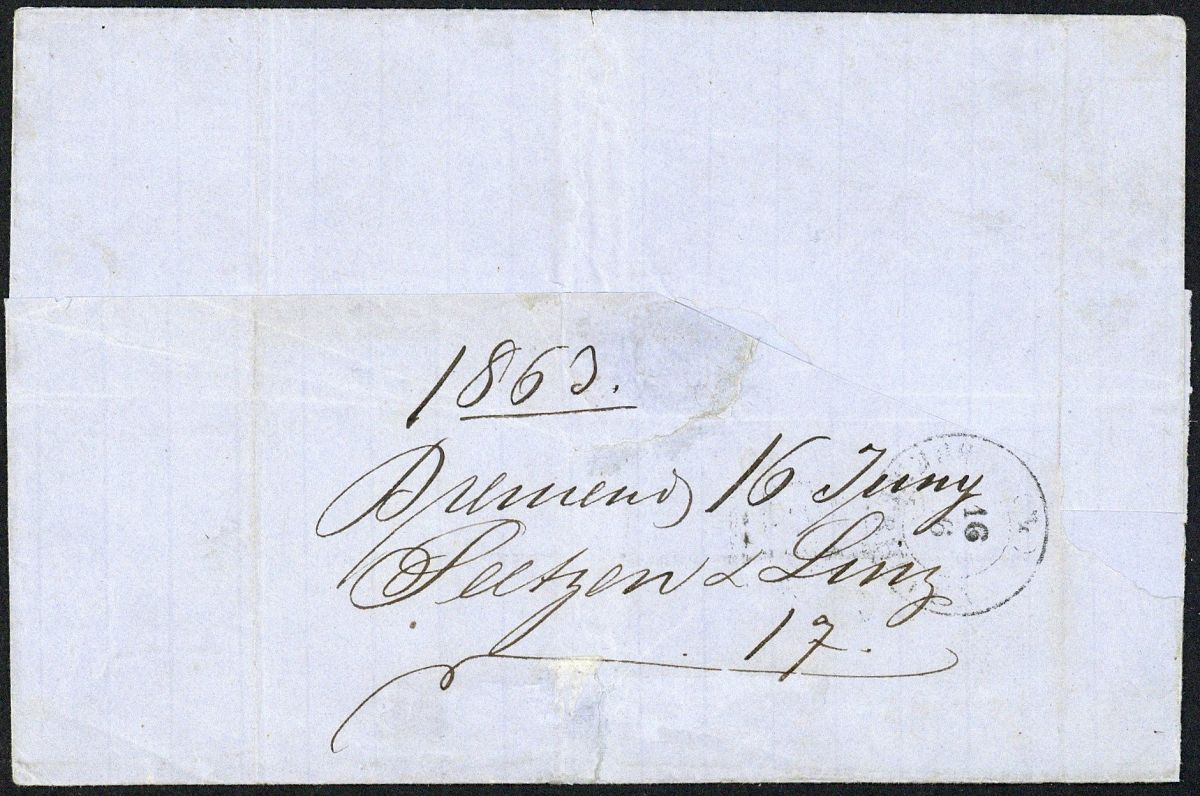 1863.
Bremen 16 Juny
Seetzen & Linz
17.
16
6